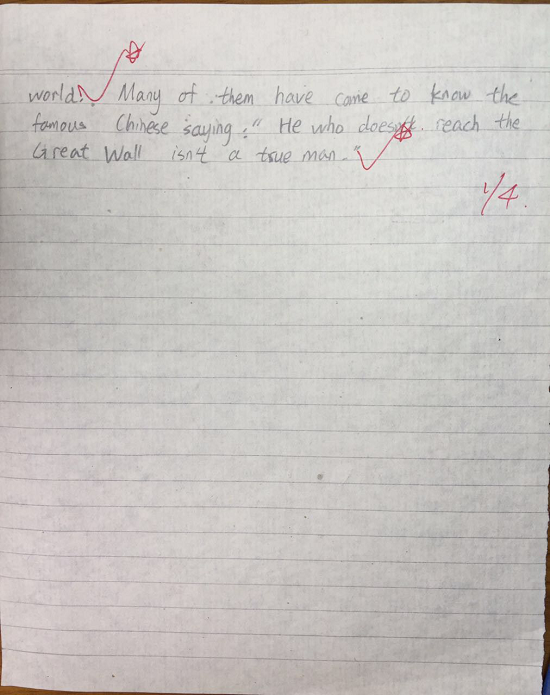 world. Many of them have come to know the
famous Chinese saying:" He who doesn't reach the
Great Wall isn't a true man."
1/4.